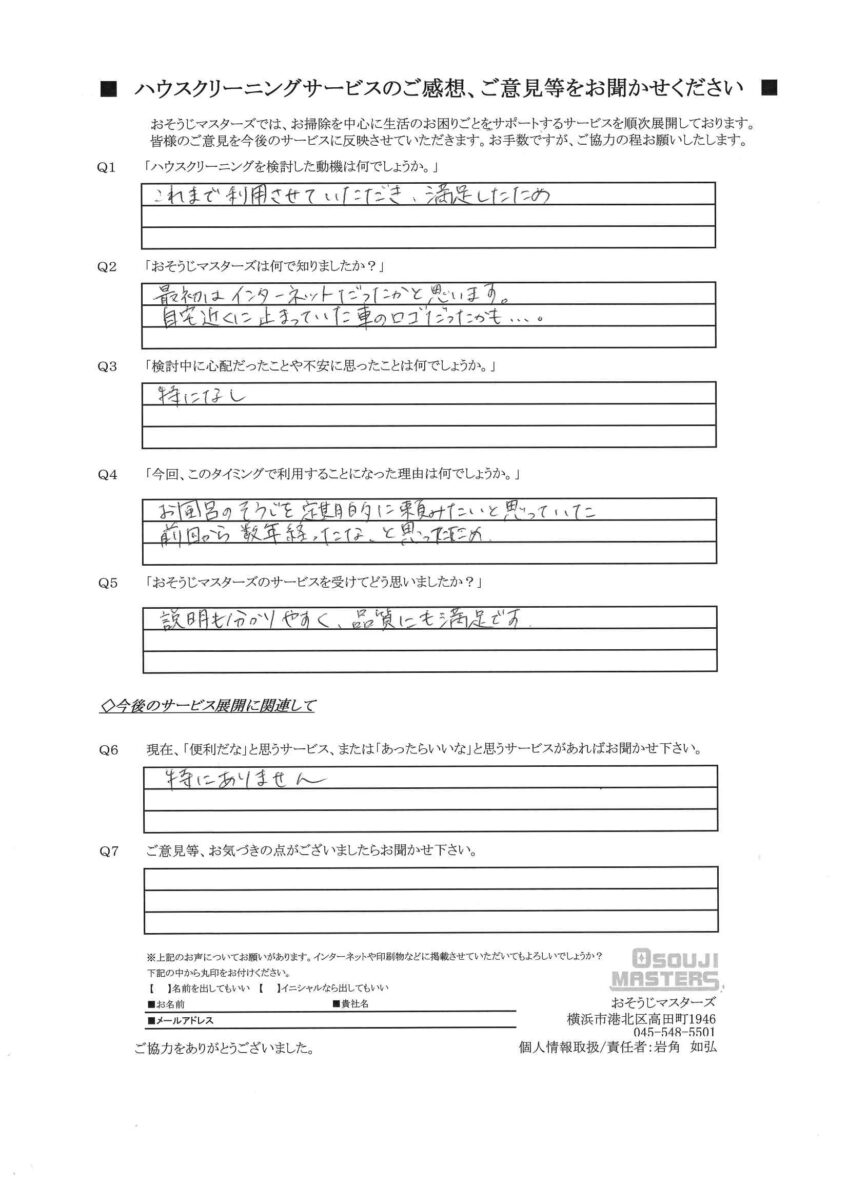 ■ ハウスクリーニングサービスのご感想、ご意見等をお聞かせください ■
おそうじマスターズでは、お掃除を中心に生活のお困りごとをサポートするサービスを順次展開しております。
皆様のご意見を今後のサービスに反映させていただきます。お手数ですが、ご協力の程お願いしたします。
Q1 「ハウスクリーニングを検討した動機は何でしょうか。」
これまで利用させていただき、満足したため
Q2 「おそうじマスターズは何で知りましたか？」
最初はインターネットだったかと思います。
自宅近くに止まっていた車のロゴだったかも…。
Q3 「検討中に心配だったことや不安に思ったことは何でしょうか。」
特になし
Q4 「今回、このタイミングで利用することになった理由は何でしょうか。」
お風呂のそうじを定期的に頼みたいと思っていた
前回から数年経ったな、と思ったため
Q5 「おそうじマスターズのサービスを受けてどう思いましたか？」
説明も分かりやすく、品質にも満足です.
◇今後のサービス展開に関連して
Q6 現在、「便利だな」と思うサービス、または「あったらいいな」と思うサービスがあればお聞かせ下さい。
特にありません
Q7 ご意見等、お気づきの点がございましたらお聞かせ下さい。
※上記のお声についてお願いがあります。インターネットや印刷物などに掲載させていただいてもよろしいでしょうか？
下記の中から丸印をお付けください。
【 】名前を出してもいい 【 】イニシャルなら出してもいい
■お名前 ■貴社名
■メールアドレス
ご協力をありがとうございました。
OSOUJI
MASTERS
おそうじマスターズ
横浜市港北区高田町1946
045-548-5501
個人情報取扱/責任者:岩角 如弘